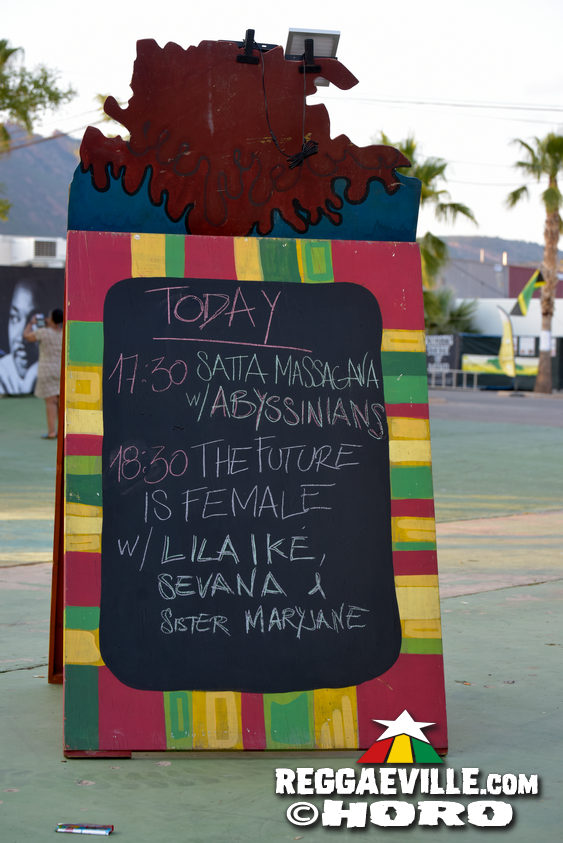 TODAY
17:30 SATTA MASSAGANA
w/ ABYSSINIANS
18:30 THE FUTURE
IS FEMALE
w/ LILA IKÉ,
SEVANA &
SISTER MARYJANE
REGGAEVILLE.COM
©HORO